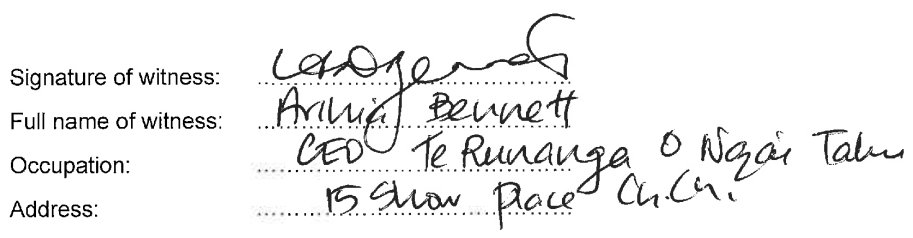 Signature of witness:
Full name of witness: Arihia Bennett
Occupation: CEO Te Runanga O Ngāi Tahu
Address: 15 Show Place Ch.Ch.